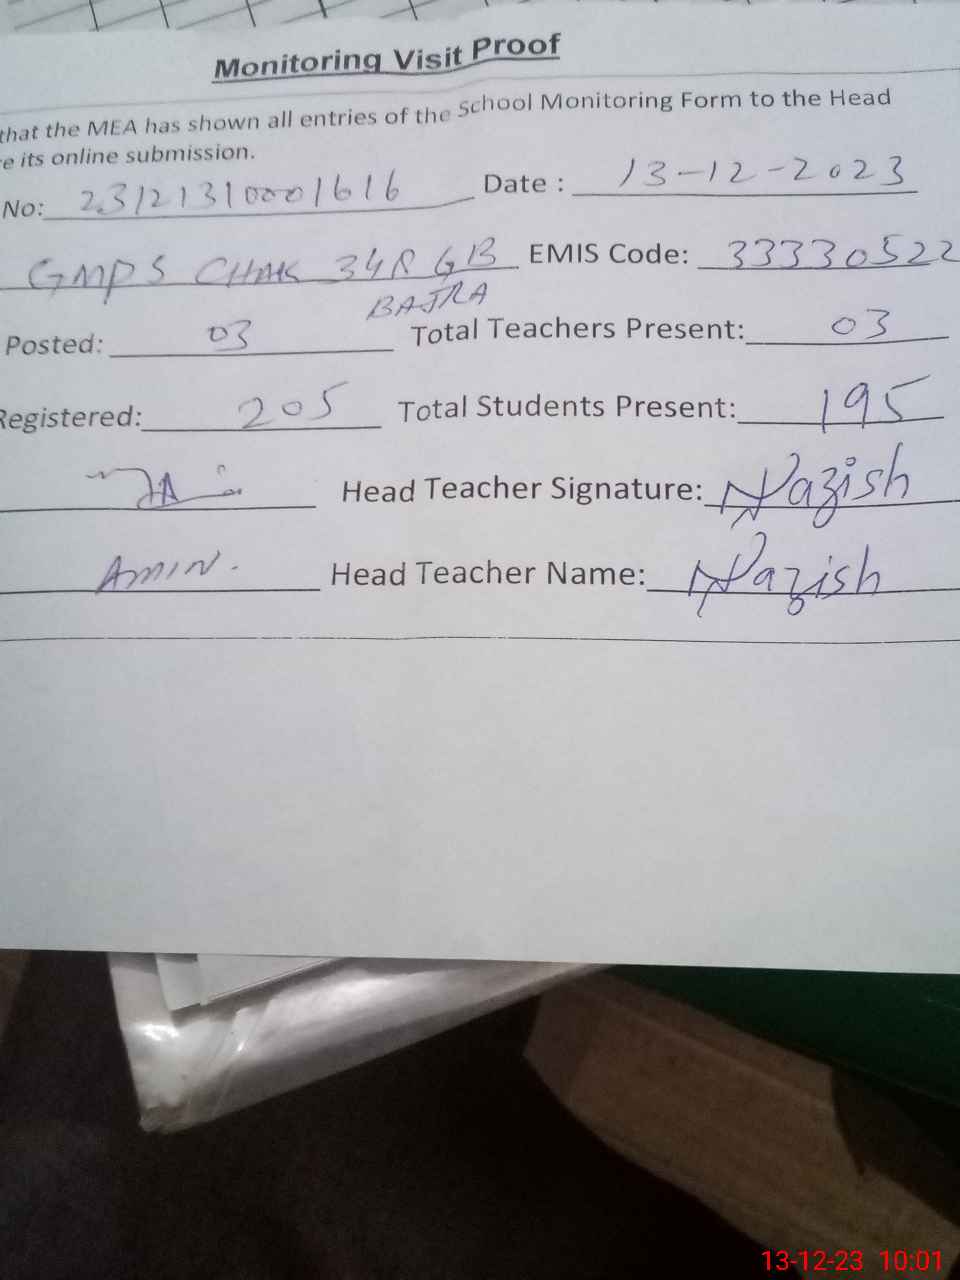 Monitoring Visit Proof
that the MEA has shown all entries of the School Monitoring Form to the Head
e its online submission.
No: 23121310001616 Date : 13-12-2023
GMPS CHAK 348 GB EMIS Code: 33330522
BAJRA
Posted: 03 Total Teachers Present: 03
Registered: 205 Total Students Present: 195
Head Teacher Signature: Nazish
AMIN. Head Teacher Name: Nazish
13-12-23 10:01